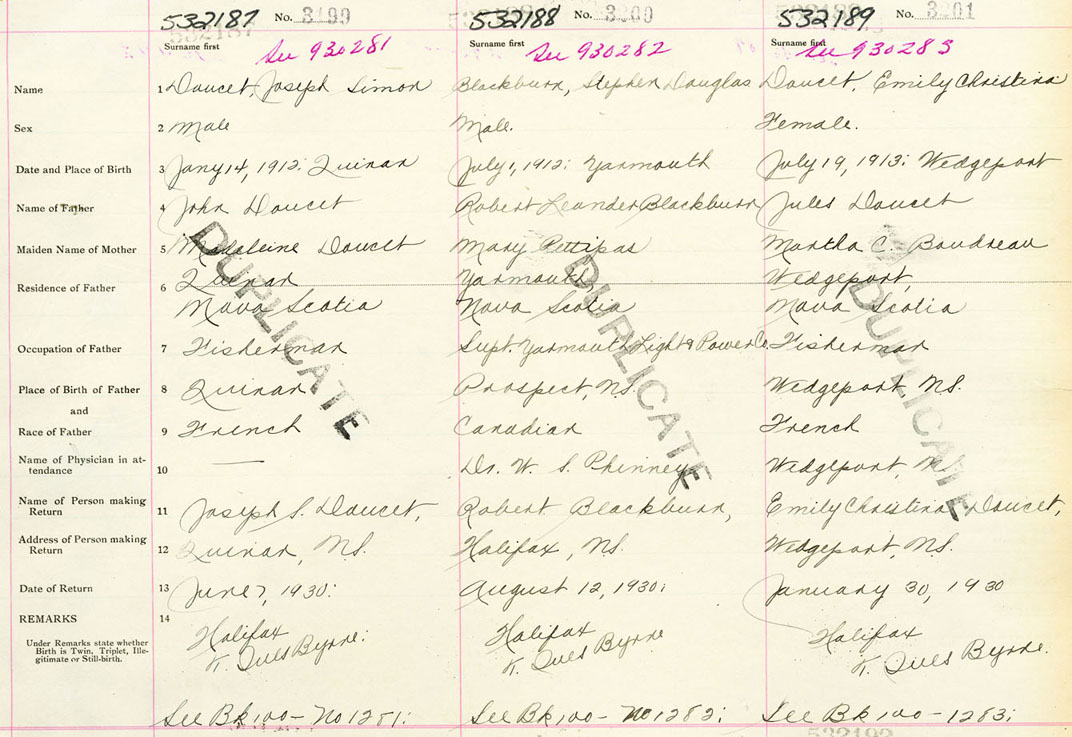 532187 No. 3199 532188 No. 3200 532189 No. 3201
Surname first Surname first Surname first
See 930281 See 930282 See 930283
Name 1 Doucet, Joseph Simon Blackburn, Stephen Douglas Doucet, Emily Christina
Sex 2 Male Male. Female.
Date and Place of Birth 3 Jany 14, 1912: Quinan July 1, 1912: Yarmouth July 19, 1913: Wedgeport
Name of Father 4 John Doucet Robert Leander Blackburn Jules Doucet
Maiden Name of Mother 5 Madaleine Doucet Mary Pettipas Martha C. Boudreau
Residence of Father 6 Quinan Yarmouth Wedgeport,
Nova Scotia Nova Scotia Nova Scotia
Occupation of Father 7 Fisherman Supt. Yarmouth Light & Power Co. Fisherman
Place of Birth of Father 8 Quinan Prospect, N.S. Wedgeport, N.S.
and
Race of Father 9 French Canadian French
Name of Physician in at-
tendance 10 — Dr. W. S. Phinney Wedgeport, N.S.
Name of Person making
Return 11 Joseph S. Doucet, Robert Blackburn, Emily Christina Doucet,
Address of Person making
Return 12 Quinan, N.S. Halifax, N.S. Wedgeport, N.S.
Date of Return 13 June 7, 1930: August 12, 1930: January 30, 1930
REMARKS 14
Under Remarks state whether
Birth is Twin, Triplet, Ille-
gitimate or Still-birth.
Halifax Halifax Halifax
Byrne: Byrne Byrne.
See Bk 100 - No 1281: See Bk 100 - No 1282: See Bk 100 - 1283:
DUPLICATE DUPLICATE DUPLICATE